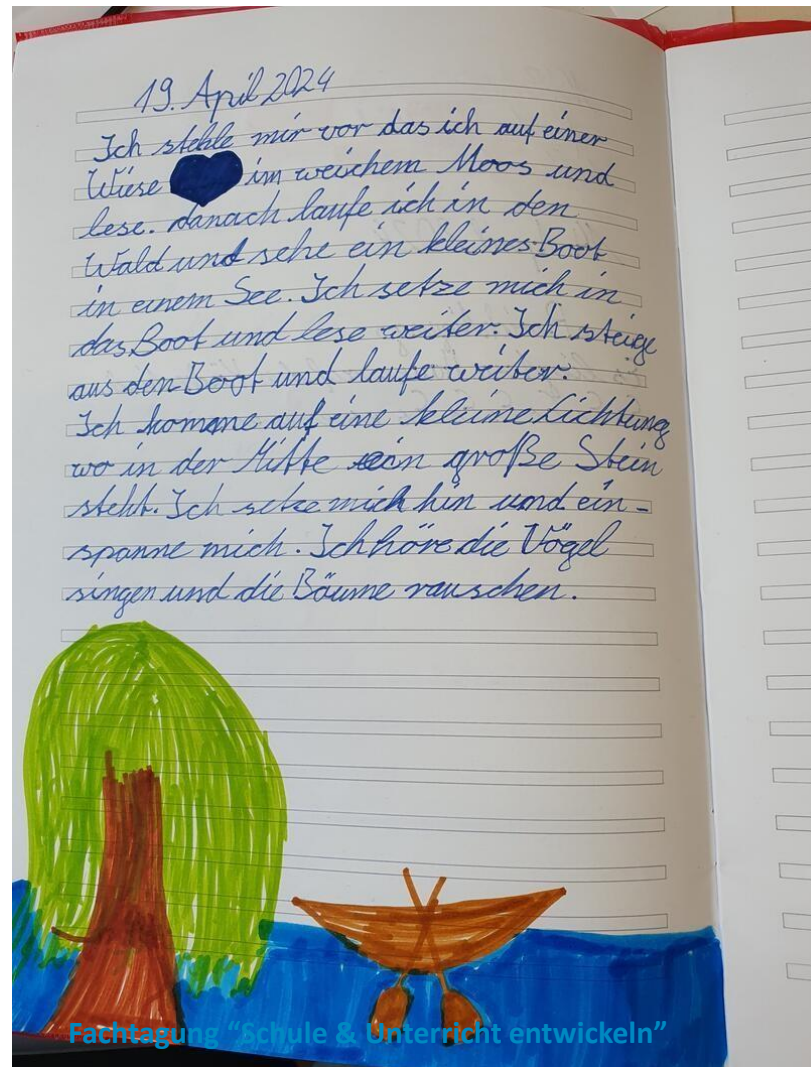 19. April 2024
Ich stehle mir vor das ich auf einer
Wiese im weichem Moos und
lese. danach laufe ich in den
Wald und sehe ein kleines Boot
in einem See. Ich setze mich in
das Boot und lese weiter. Ich steige
aus den Boot und laufe weiter.
Ich komme auf eine kleine Lichtung
wo in der Mitte ein große Stein
steht. Ich setze mich hin und ein-
spanne mich. Ich höre die Vögel
singen und die Bäume rauschen.
Fachtagung "Schule & Unterricht entwickeln"